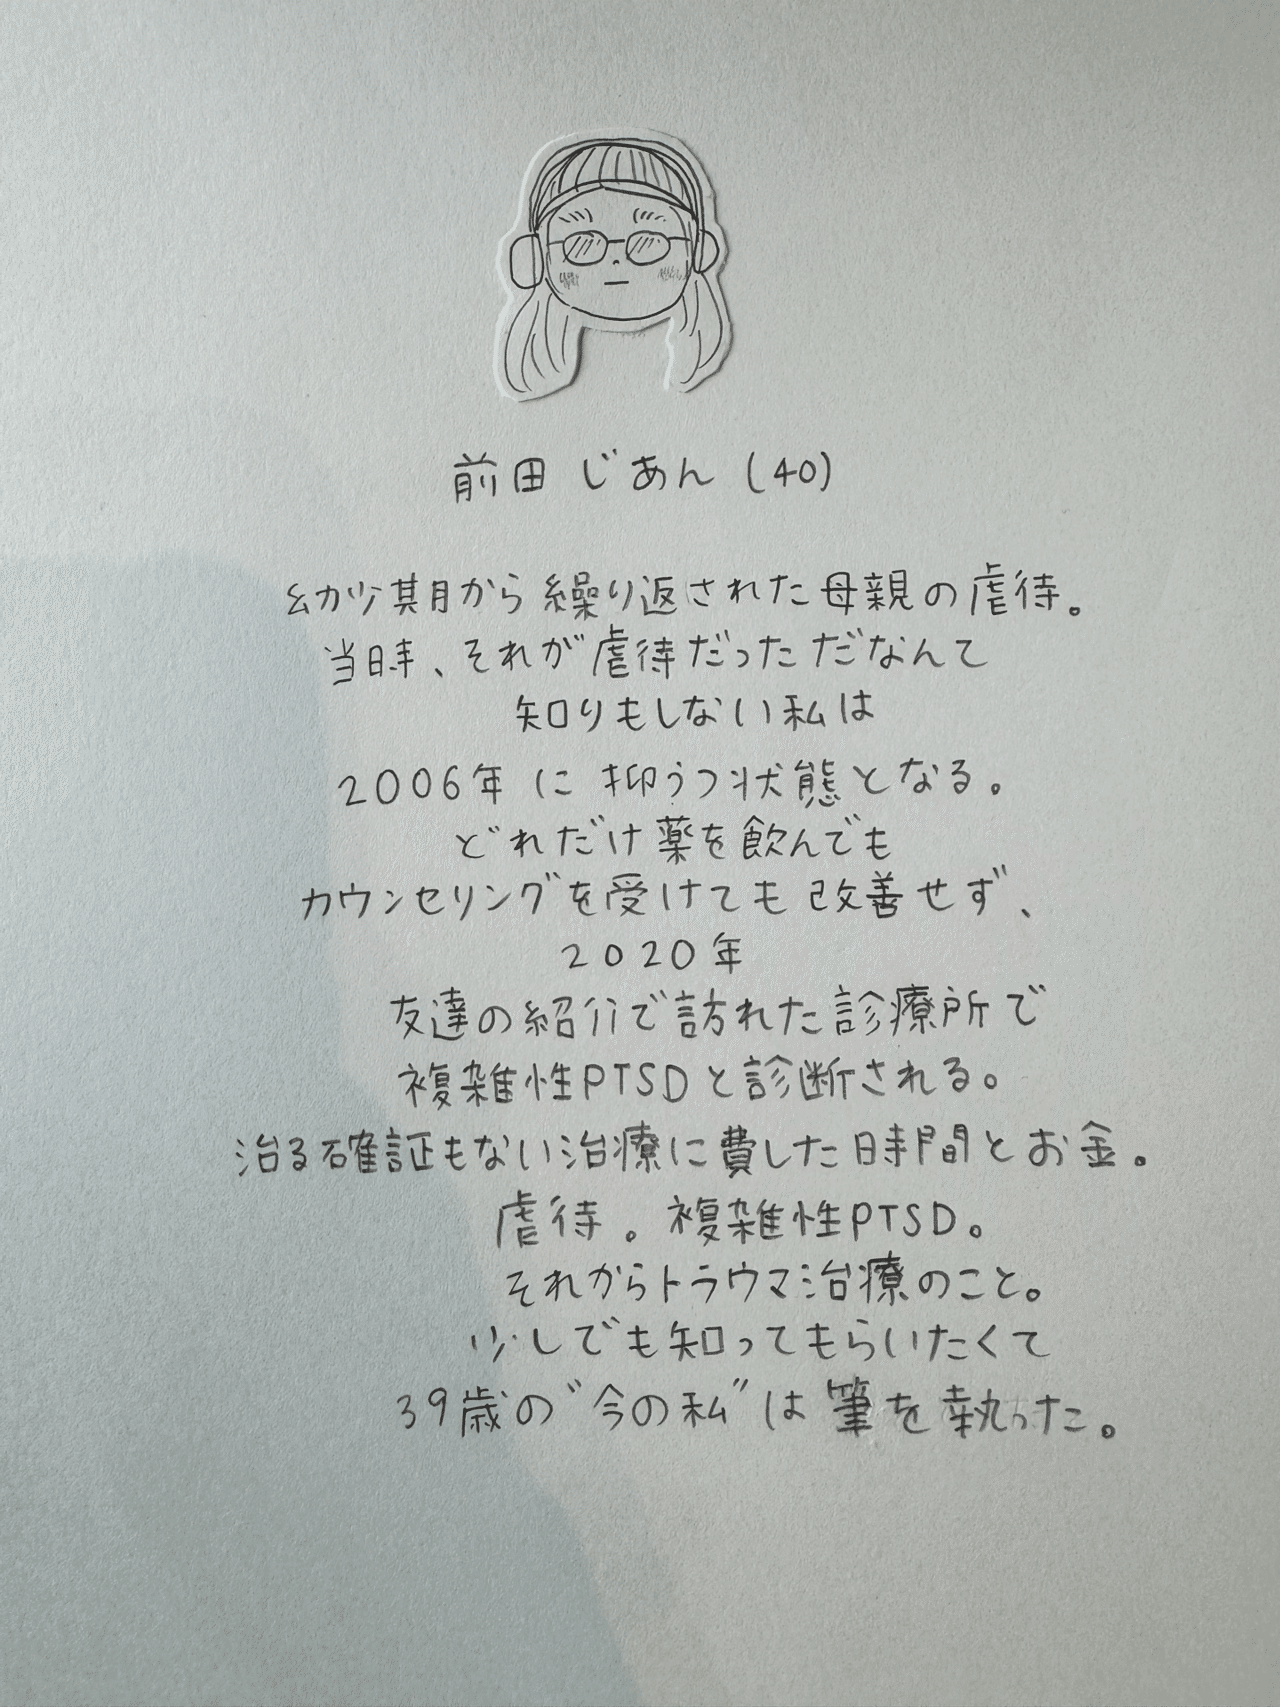 前田 じあん (40)
幼少期から繰り返された母親の虐待。
当時、それが虐待だっただなんて
知りもしない私は
2006年に 抑うつ状態となる。
どれだけ薬を飲んでも
カウンセリングを受けても改善せず、
2020年
友達の紹介で訪れた診療所で
複雑性PTSDと診断される。
治る確証もない治療に費した時間とお金。
虐待。複雑性PTSD。
それからトラウマ治療のこと。
少しでも知ってもらいたくて
39歳の"今の私"は筆を執った。